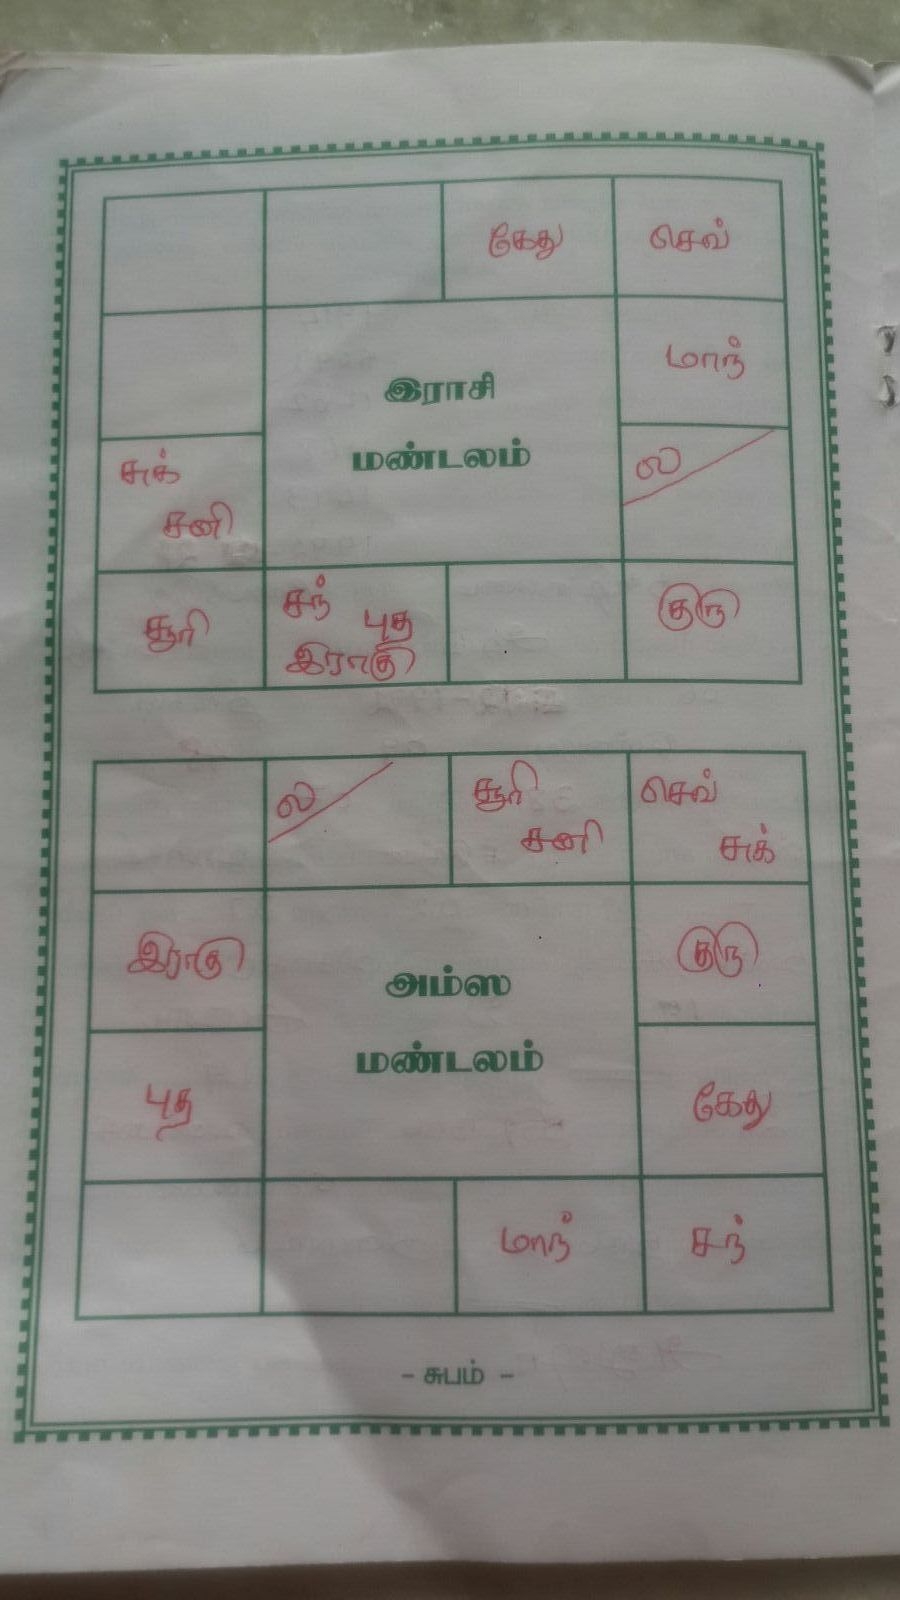 கேது செவ்
மாந்
இராசி
மண்டலம்
ல
சுக்
சனி
சூரி
சந்
புத
இராகு
குரு
ல
சூரி
சனி
செவ்
சுக்
இராகு
குரு
அம்ஸ
மண்டலம்
புத
கேது
மாந்
சந்
- சுபம் -